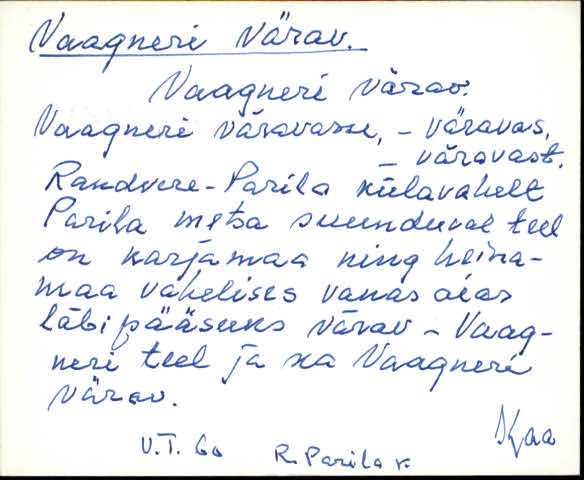 Vaagneri Värav.
Vaagneri värav.
Vaagneri väravasse, – väravas,
– väravast.
Randvere-Parila külavahelt
Parila metsa suunduval teel
on karjamaa ning heina-
maa vahelises vanas aias
läbipääsuks värav – Vaag-
neri teel ja ka Vaagneri
värav.
Kaa
V.T. 60 R. Parila k.